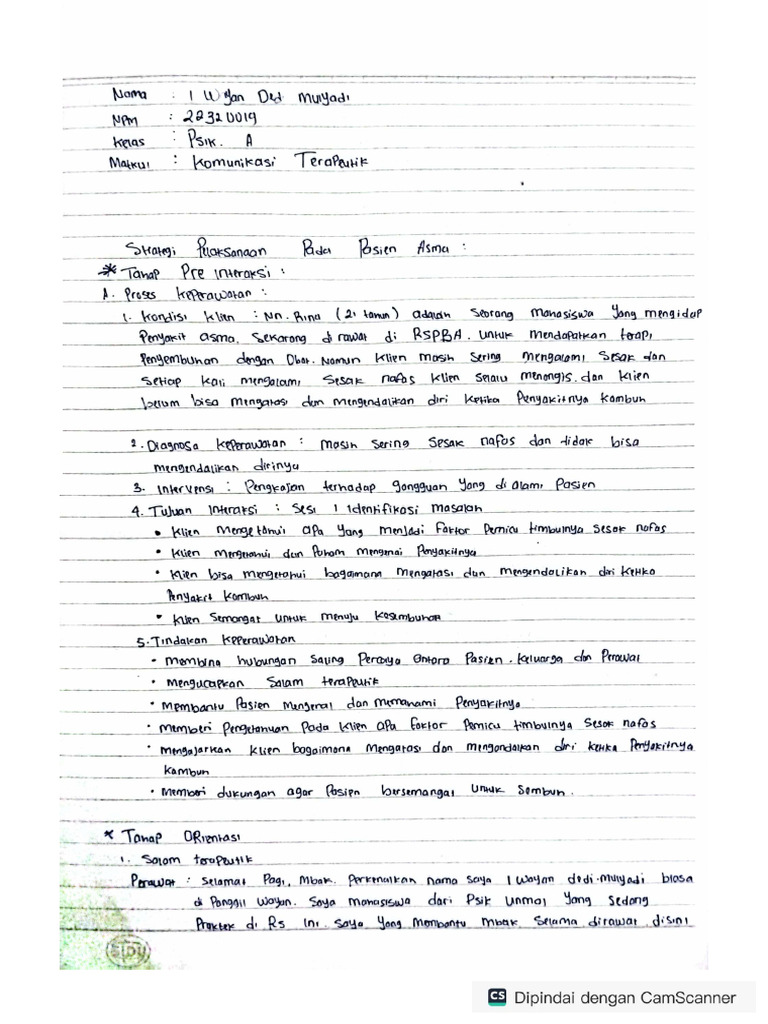 Nama : I Wayan Dedi Mulyadi
NPM : 22320019
Kelas : Psik. A
Matkul : Komunikasi Terapeutik
Strategi Pelaksanaan Pada Pasien Asma :
* Tahap Pre interaksi :
A. Proses keperawatan :
1. Kondisi klien : Nn. Rina (21 tahun) adalah seorang mahasiswa yang mengidap
Penyakit asma. Sekarang dirawat di RSPBA. Untuk mendapatkan terapi
Penyembuhan dengan Obat. Namun klien masih sering mengalami sesak dan
Setiap kali mengalami sesak nafas klien selalu menangis. dan klien
belum bisa mengatasi dan mengendalikan diri ketika Penyakitnya kambuh
2. Diagnosa keperawatan : masih sering sesak nafas dan tidak bisa
mengendalikan dirinya
3. Intervensi : Pengkajian terhadap gangguan yang di alami Pasien
4. Tujuan interaksi : Sesi 1 identifikasi masalah
• Klien mengetahui apa yang menjadi faktor Pemicu timbulnya sesak nafas
• Klien mengetahui dan Paham mengenai Penyakitnya
• Klien bisa mengetahui bagaimana mengatasi dan mengendalikan diri ketika
Penyakit kambuh
• Klien Semangat untuk menuju kesembuhan
5. Tindakan keperawatan
• membina hubungan saling Percaya antara Pasien. keluarga dan Perawat
• mengucapkan Salam terapeutik
• membantu Pasien mengenal dan memahami Penyakitnya
• memberi Pengetahuan Pada klien apa faktor Pemicu timbulnya Sesak nafas
• mengajarkan klien bagaimana mengatasi dan mengendalikan diri ketika Penyakitnya
kambuh
• memberi dukungan agar Pasien bersemangat untuk sembuh.
* Tahap ORientasi
1. Salam terapeutik
Perawat : Selamat Pagi, Mbak. Perkenalkan nama saya I Wayan dedi mulyadi biasa
di Panggil Wayan. Saya mahasiswa dari Psik unmal yang sedang
Praktek di Rs ini. saya yang membantu mbak selama dirawat disini
SIDU
CS Dipindai dengan CamScanner